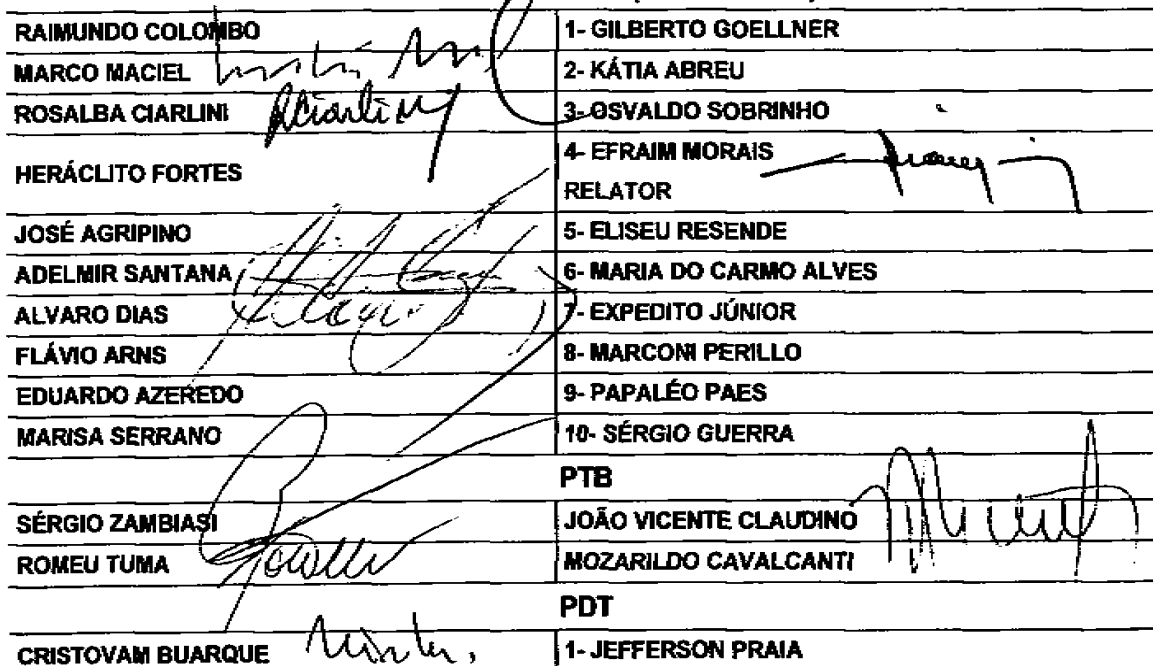 RAIMUNDO COLOMBO 1- GILBERTO GOELLNER
MARCO MACIEL 2- KÁTIA ABREU
ROSALBA CIARLINI 3- OSVALDO SOBRINHO
HERÁCLITO FORTES 4- EFRAIM MORAIS
RELATOR
JOSÉ AGRIPINO 5- ELISEU RESENDE
ADELMIR SANTANA 6- MARIA DO CARMO ALVES
ALVARO DIAS 7- EXPEDITO JÚNIOR
FLÁVIO ARNS 8- MARCONI PERILLO
EDUARDO AZEREDO 9- PAPALÉO PAES
MARISA SERRANO 10- SÉRGIO GUERRA
PTB
SÉRGIO ZAMBIASI JOÃO VICENTE CLAUDINO
ROMEU TUMA MOZARILDO CAVALCANTI
PDT
CRISTOVAM BUARQUE 1- JEFFERSON PRAIA